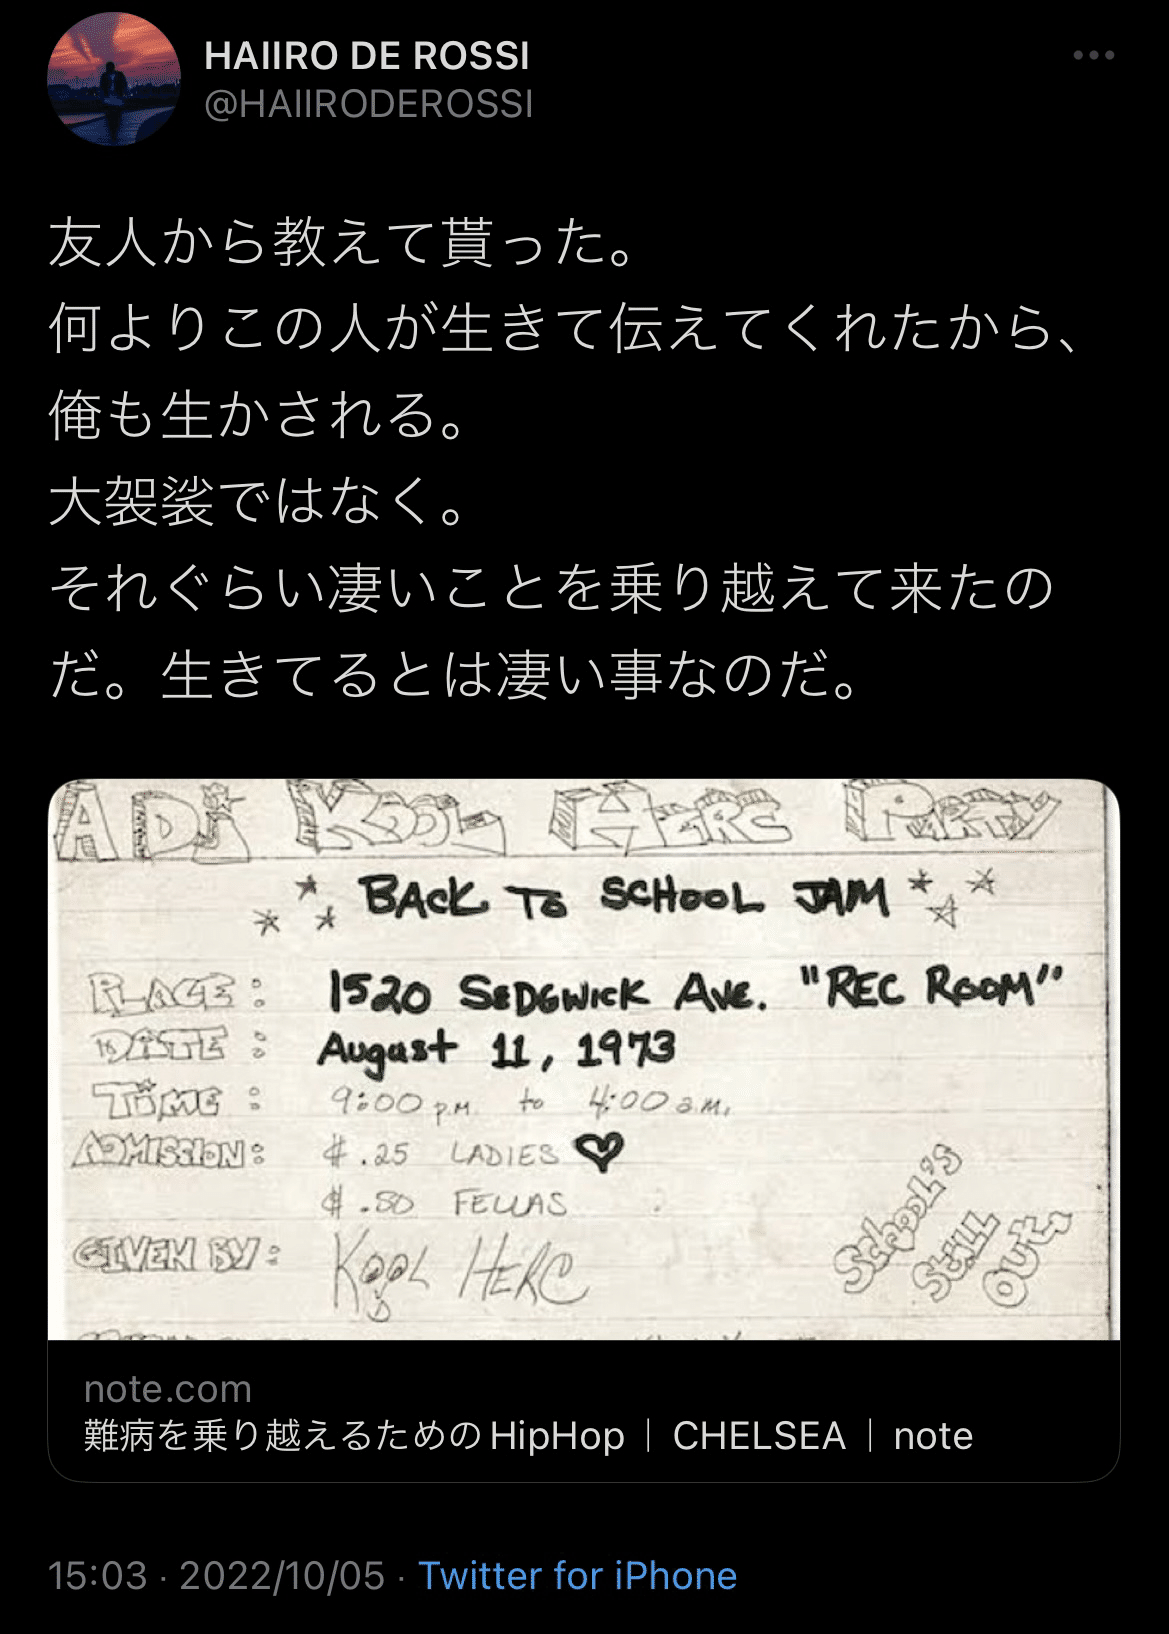 HAIIRO DE ROSSI
@HAIIRODEROSSI
友人から教えて貰った。
何よりこの人が生きて伝えてくれたから、
俺も生かされる。
大袈裟ではなく。
それぐらい凄いことを乗り越えて来たの
だ。生きてるとは凄い事なのだ。
A DJ KOOL HERC PARTY
BACK TO SCHOOL JAM
PLACE: 1520 SEDGWICK AVE. "REC ROOM"
DATE: August 11, 1973
TIME: 9:00 P.M. to 4:00 a.m.
ADMISSION: $.25 LADIES
$.50 FELLAS
GIVEN BY: KOOL HERC
SCHOOL'S
STILL
OUT
note.com
難病を乗り越えるためのHipHop｜CHELSEA｜note
15:03 · 2022/10/05 · Twitter for iPhone